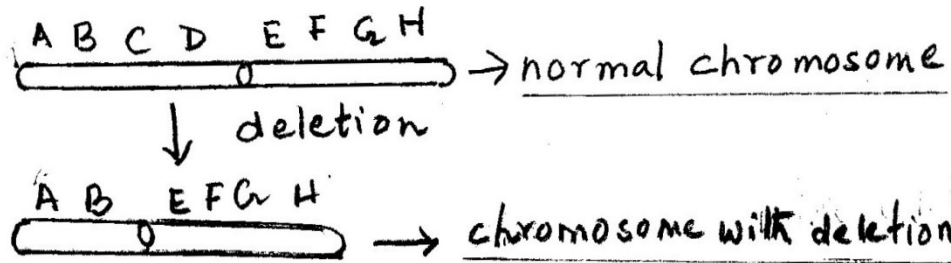 A B C D E F G H
→ normal chromosome
↓ deletion
A B E F G H
→ chromosome with deletion